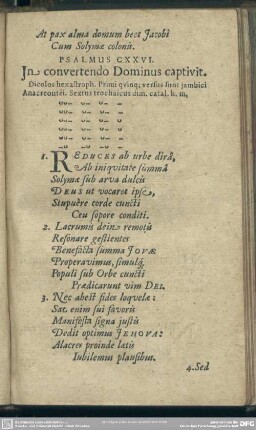 At pax alma domum beet Jacobi
Cum Solymæ colonis.
PSALMUS CXXVI.
Jn convertendo Dominus captivit.
Dicolos hexastroph. Primi qvinq; versus sunt jambici
Anacreontei. Sextus trochaicus dim. catal. h. m.
1. REDUCES ab urbe dirâ,
Ab iniqvitate summâ
Solymæ sub arva dulcis
DEUS ut vocarot ipse,
Stupuêre corde cuncti
Ceu sopore conditi.
2. Lacrumis dein remotis
Resonare gestientes
Benefacta summa JOVÆ
Properavimus, simulq;
Populi sub Orbe cuncti
Prædicarunt vim DEI.
3. Nec abest fides loquelæ:
Sat enim sui favoris
Manifesta signa justis
Dedit optimus JEHOVA:
Alacres proinde latis
Jubilemus plausibus.
4. Sed